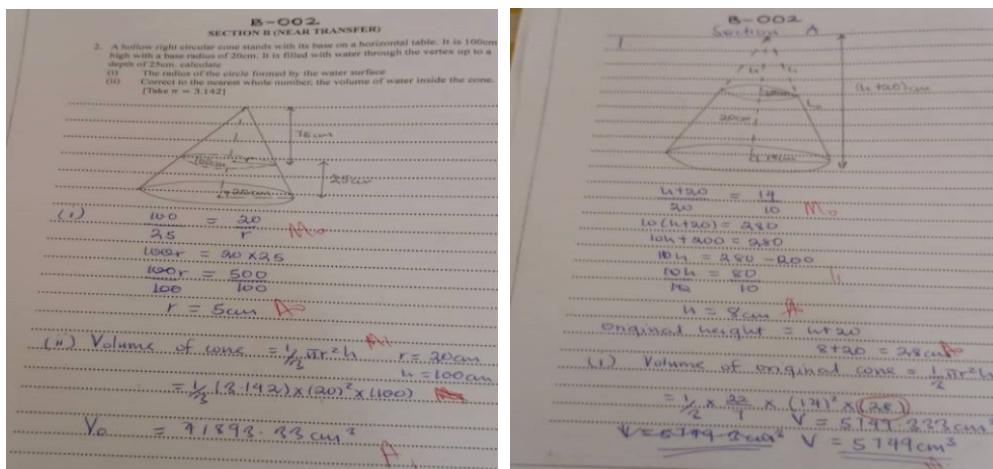 B-002
SECTION B (NEAR TRANSFER)
2. A hollow right circular cone stands with its base on a horizontal table. It is 100cm
high with a base radius of 20cm. It is filled with water through the vertex up to a
depth of 25cm. calculate
(i) The radius of the circle formed by the water surface
(ii) Correct to the nearest whole number, the volume of water inside the cone.
[Take π = 3.142]
25cm
20cm
(i) 100/25 = 20/r M0
100r = 20 x 25
100r/100 = 500/100
r = 5cm A0
(ii) Volume of cone = 1/3 πr²h r = 20cm
h = 100cm
= 1/3 (3.142) x (20)² x (100)
V0 = 41893.33 cm³
A
B-002
Section A
1
(h+20)cm
20cm
14cm
h+20/20 = 14/10 M0
10(h+20) = 280
10h + 200 = 280
10h = 280 - 200
10h/10 = 80/10
h = 8cm A
Original height = h+20
8+20 = 28cm A0
(i) Volume of original cone = 1/3 πr²h
= 1/3 x 22/7 x (14)² x (28)
V = 5749.333 cm³
V = 5749cm³